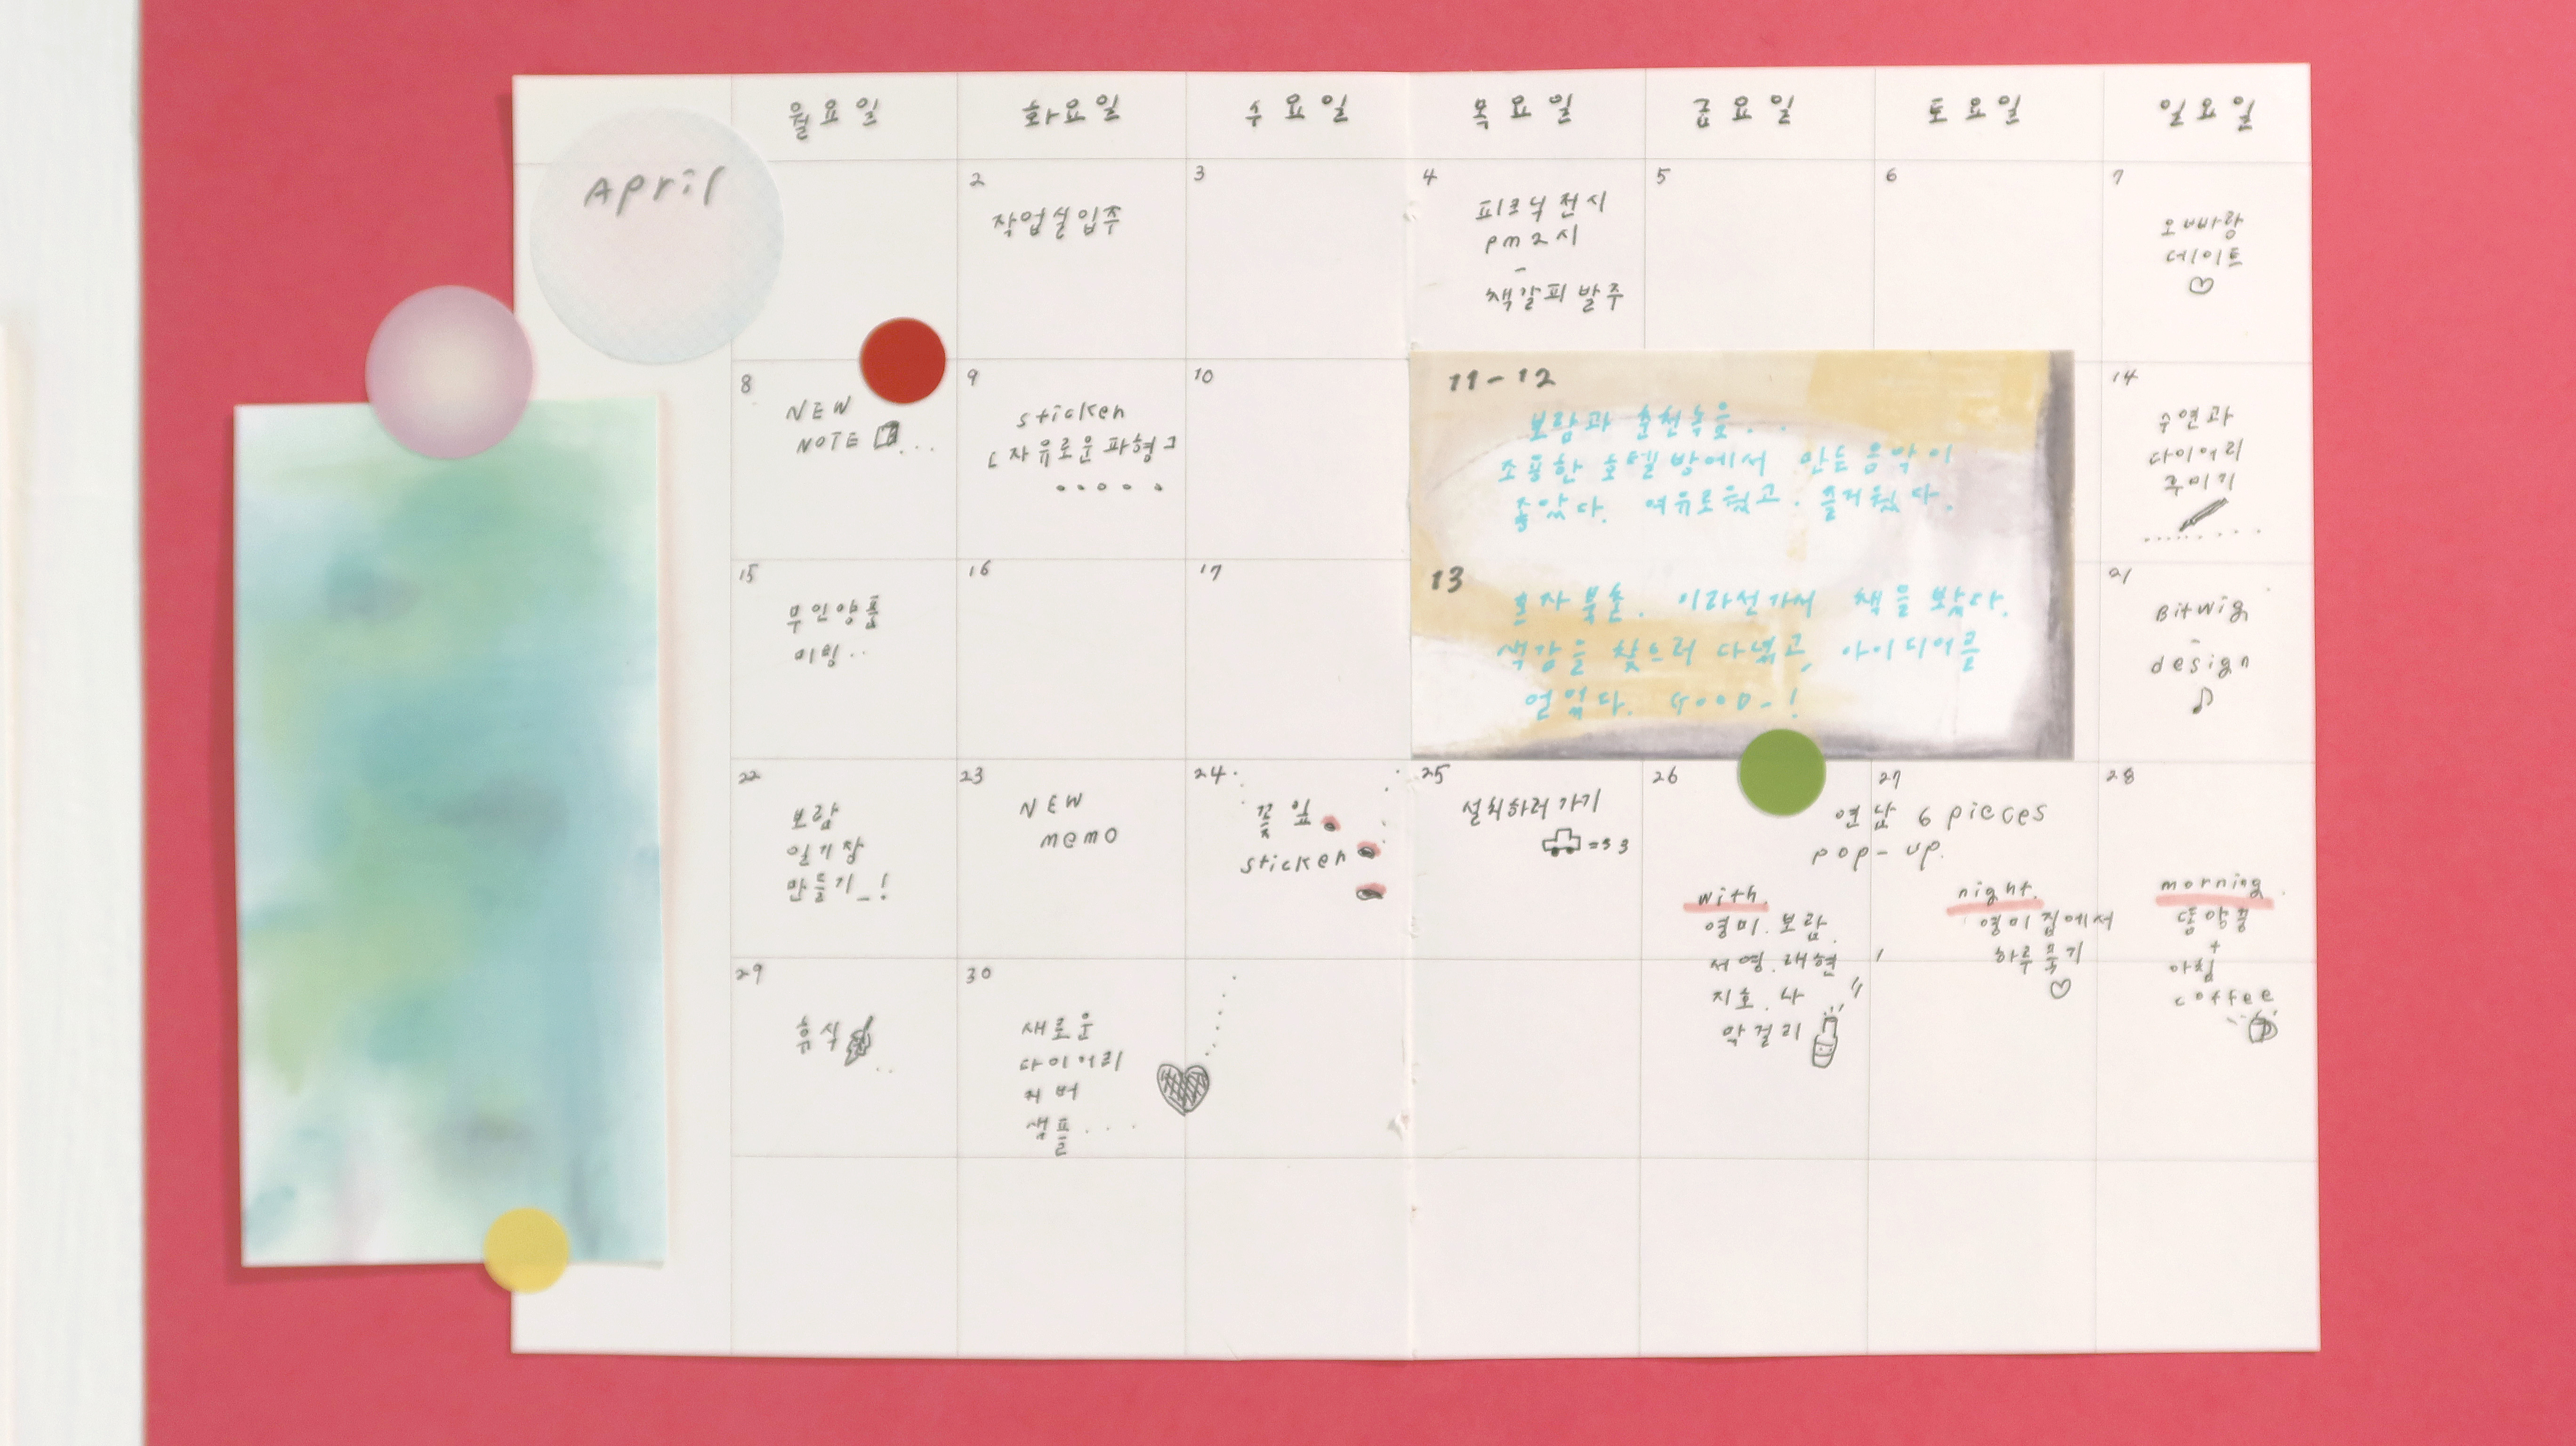 April
월요일
화요일
수요일
목요일
금요일
토요일
일요일
2
작업실입주
3
4
피크닉 전시
pm 2시
-
책갈피 발주
5
6
7
오빠랑
데이트
8
NEW
NOTE ...
9
sticker
[자유로운 파형]
10
11-12
보람과 춘천녹음..
조용한 호텔 방에서 만든 음악이
좋았다. 여유로웠고. 즐거웠다.
13
혼자 북촌. 이라선가서 책을 봤다.
색감을 찾으러 다녔고, 아이디어를
얻었다. GOOD-!
14
수연과
다이어리
꾸미기
15
무인양품
미팅..
16
17
21
Bitwig
-
design
22
보람
일기장
만들기_!
23
NEW
memo
24
꽃잎
sticker
25
설치하러가기
=33
26
27
연남 6 pieces
pop-up.
with.
영미. 보람.
서영. 래현
지호. 나
막걸리
night.
영미집에서
하루묵기
28
morning.
똠양꿍
+
아침
coffee
29
휴식
30
새로운
다이어리
커버
샘플...